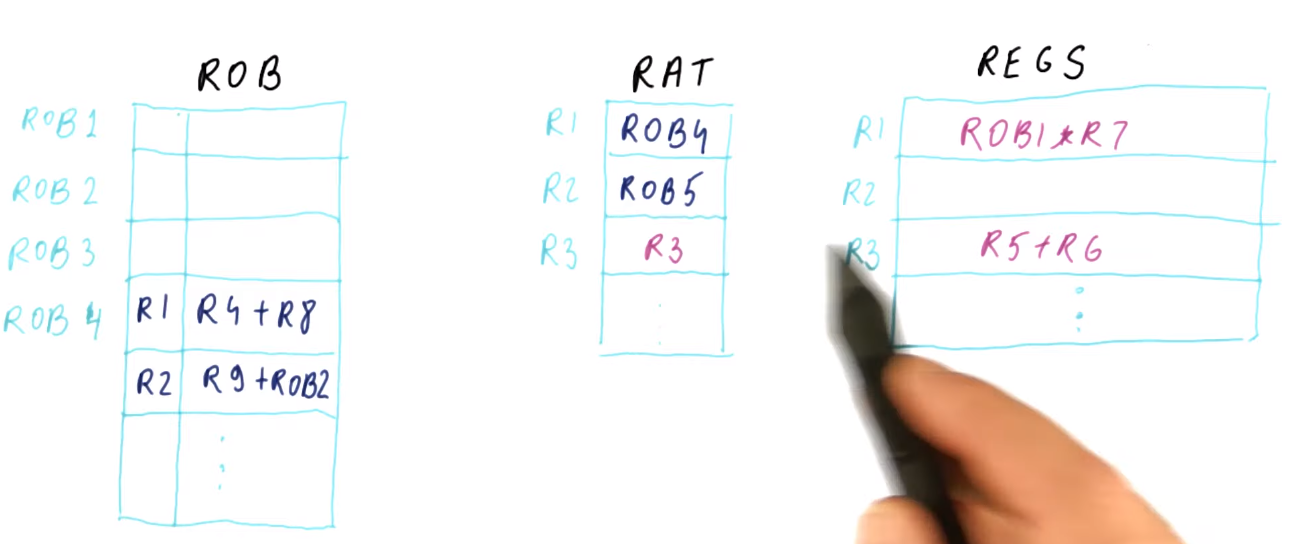 ROB
RAT
REGS
ROB1
ROB2
ROB3
ROB4
R1 R4+R8
R2 R9+ROB2
R1 ROB4
R2 ROB5
R3 R3
R1 ROB1*R7
R2
R3 R5+R6